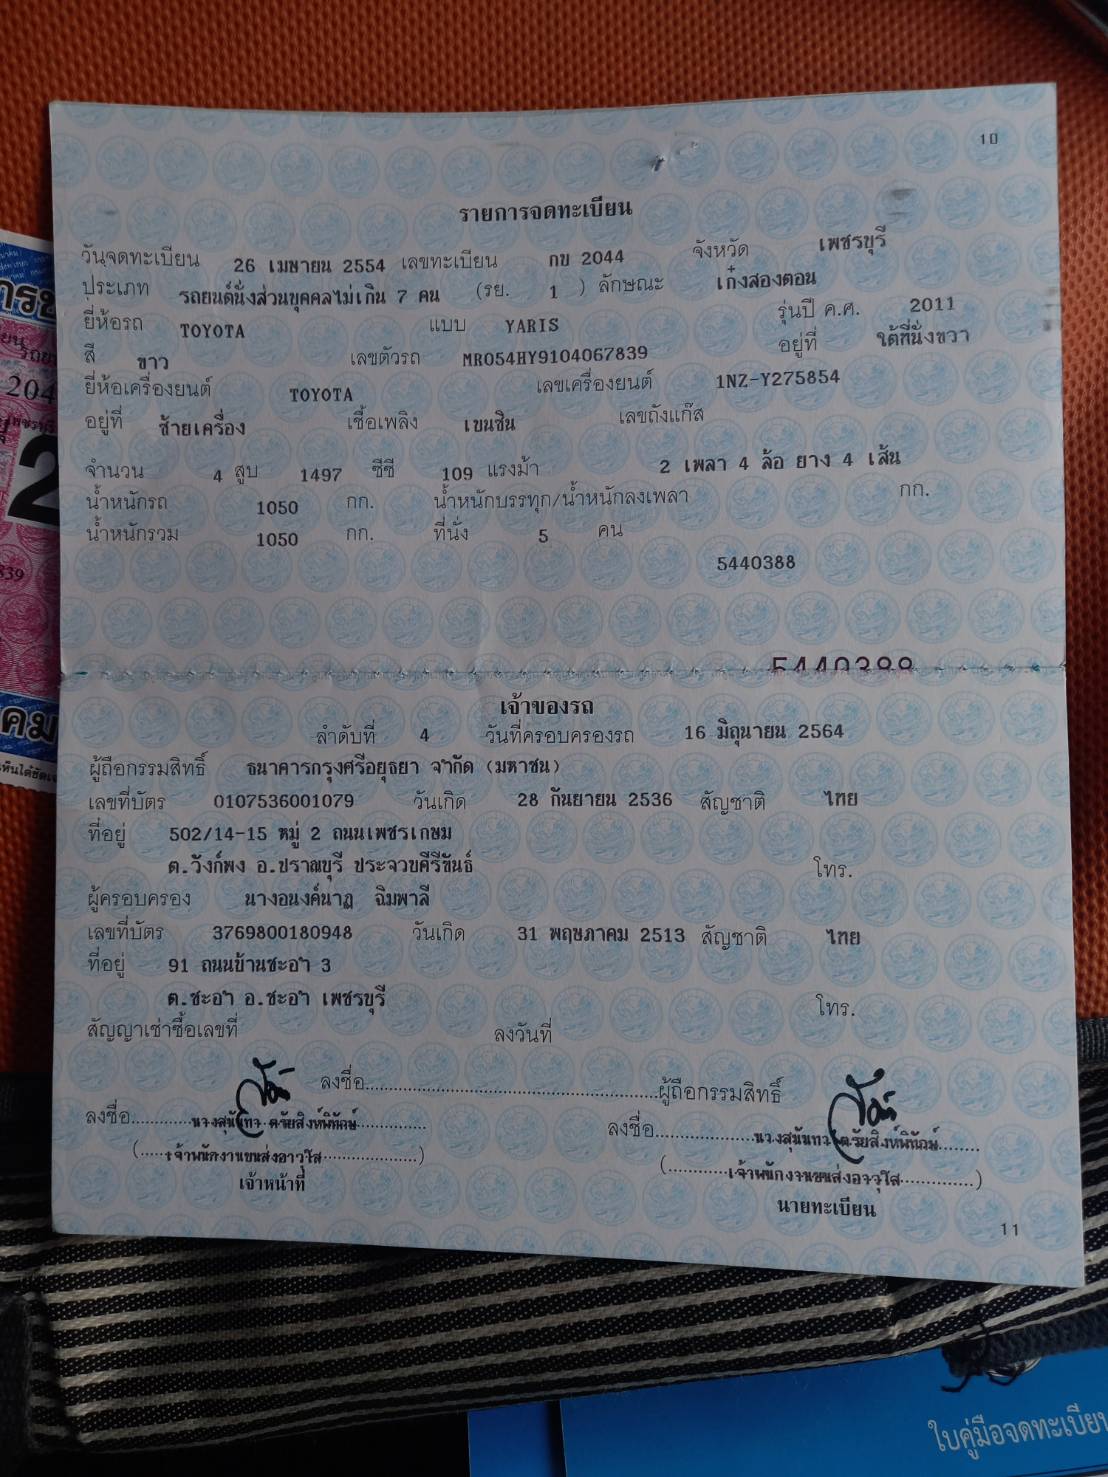 10
รายการจดทะเบียน
วันจดทะเบียน 26 เมษายน 2554 เลขทะเบียน กข 2044 จังหวัด เพชรบุรี
ประเภท รถยนต์นั่งส่วนบุคคลไม่เกิน 7 คน (รย. 1 ) ลักษณะ เก๋งสองตอน
ยี่ห้อรถ TOYOTA แบบ YARIS รุ่นปี ค.ศ. 2011
สี ขาว เลขตัวรถ MR054HY9104067839 อยู่ที่ ใต้ที่นั่งขวา
ยี่ห้อเครื่องยนต์ TOYOTA เลขเครื่องยนต์ 1NZ-Y275854
อยู่ที่ ซ้ายเครื่อง เชื้อเพลิง เบนซิน เลขถังแก๊ส
จำนวน 4 สูบ 1497 ซีซี 109 แรงม้า 2 เพลา 4 ล้อ ยาง 4 เส้น
น้ำหนักรถ 1050 กก. น้ำหนักบรรทุก/น้ำหนักลงเพลา กก.
น้ำหนักรวม 1050 กก. ที่นั่ง 5 คน
5440388
5440388
เจ้าของรถ
ลำดับที่ 4 วันที่ครอบครองรถ 16 มิถุนายน 2564
ผู้ถือกรรมสิทธิ์ ธนาคารกรุงศรีอยุธยา จำกัด (มหาชน)
เลขที่บัตร 0107536001079 วันเกิด 28 กันยายน 2536 สัญชาติ ไทย
ที่อยู่ 502/14-15 หมู่ 2 ถนนเพชรเกษม
ต.วังก์พง อ.ปราณบุรี ประจวบคีรีขันธ์ โทร.
ผู้ครอบครอง นางอนงค์นาฏ ฉิมพาลี
เลขที่บัตร 3769800180948 วันเกิด 31 พฤษภาคม 2513 สัญชาติ ไทย
ที่อยู่ 91 ถนนบ้านชะอำ 3
ต.ชะอำ อ.ชะอำ เพชรบุรี โทร.
สัญญาเช่าซื้อเลขที่ ลงวันที่
ลงชื่อ ผู้ถือกรรมสิทธิ์
ลงชื่อ นางสุนันทา ตรัยสิงห์พิทักษ์ ลงชื่อ นางสุนันทา ตรัยสิงห์พิทักษ์
(เจ้าพนักงานขนส่งอาวุโส) (เจ้าพนักงานขนส่งอาวุโส)
เจ้าหน้าที่ นายทะเบียน
11
204
2
839
คม
ใบคู่มือจดทะเบียน